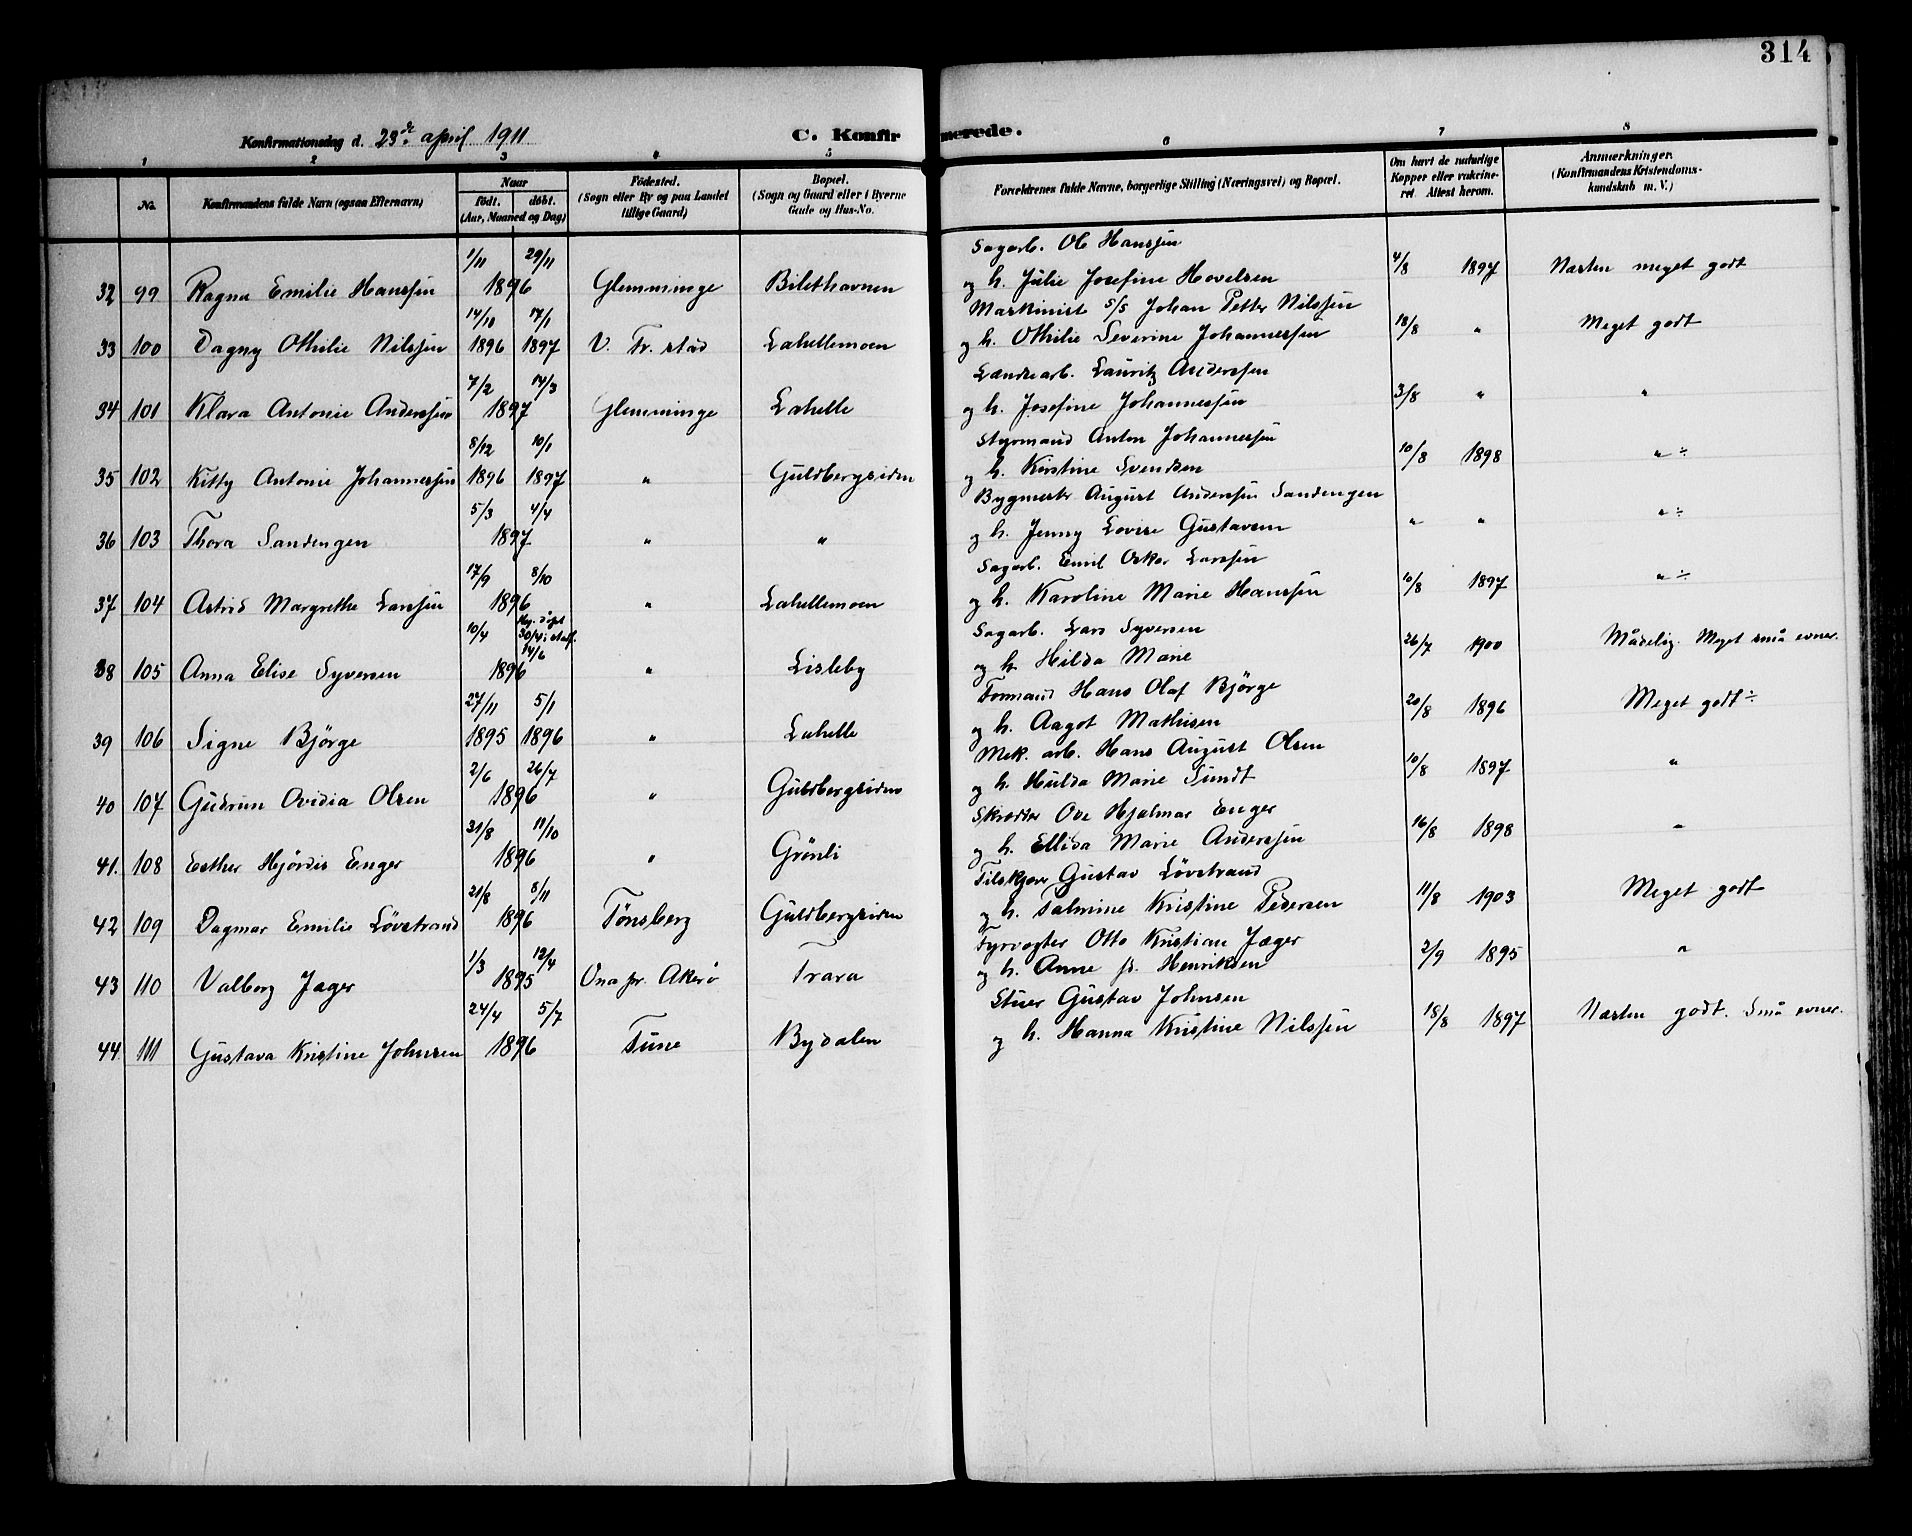 314
Konfirmationsdag d. 23de april 1911.
C. Konfirmerede.
1 2 3 4 5 6 7 8
No. Konfirmandens fulde Navn (ogsaa Efternavn) Naar født. døbt. (Aar, Maaned og Dag) Fødested. (Sogn eller By og paa Landet tillige Gaard) Bopæl. (Sogn og Gaard eller i Byerne Gade og Hus-No. Forældrenes fulde Navne, borgerlige Stilling (Næringsvei) og Bopæl. Om havt de naturlige Kopper eller vakcineret. Attest herom. Anmærkninger. (Konfirmandens Kristendomskundskab m. V.)
1/11 29/11 Sagarb. Ole Hanssen
32 99 Ragna Emilie Hanssen 1896 Glemminge Bilethavnen og h. Julie Josefine Hovelsen 4/8 1897 Næsten meget godt
14/10 17/1 Maskinist S/S Johan Petter Nilssen
33 100 Dagny Othilie Nilssen 1896 1897 V. Fr.stad Lahellemoen og h. Othilie Severine Johannessen 18/8 " Meget godt
7/2 14/3 Lændsearb. Lauritz Anderssen
34 101 Klara Antonie Anderssen 1897 Glemminge Lahelle og h. Josefine Johannessen 3/8 " "
8/12 10/1 Styrmand Anton Johannessen
35 102 Kitty Antonie Johannessen 1896 1897 " Guldbergsiden og h. Kristine Svendsen 10/8 1898 " ÷
5/3 4/4 Bygmester August Anderssen Sandengen
36 103 Thora Sandengen 1897 " " og h. Jenny Lovise Gustavsen " " " ÷
17/9 8/10 Sagarb. Emil Oskar Larssen
37 104 Astrid Margrethe Larssen 1896 " Lahellemoen og h. Karoline Marie Hanssen 10/8 1897 " ÷
10/4 Hj. døpt 30/4 i staf. 14/6 Sagarb. Lars Syversen
38 105 Anna Elise Syversen 1896 " Lisleby og h. Hilda Marie 26/7 1900 Mådelig. Meget små evner.
27/11 5/1 Formand Hans Olaf Bjørge
39 106 Signe Bjørge 1895 1896 " Lahelle og h. Aagot Mathisen 20/8 1896 Meget godt ÷
2/6 26/7 Mek. arb. Hans August Olsen
40 107 Gudrun Ovidia Olsen 1896 " Guldbergsiden og h. Hulda Marie Sundt 10/8 1897 "
31/8 11/10 Skrædder Ove Hjalmar Enger
41. 108 Esther Hjørdis Enger 1896 " Grønli og h. Ellida Marie Anderssen 16/8 1898 "
21/8 8/11 Filskjærer Gustav Løvstrand
42 109 Dagmar Emilie Løvstrand 1896 Tønsberg Guldbergsiden og h. Palmine Kristine Pedersen 11/8 1903 Meget godt
1/3 12/4 Fyrvogter Otto Kristian Jæger
43 110 Valborg Jæger 1895 Ona pr. Akerø Trara og h. Anne f. Henriksen 2/9 1895 "
24/4 5/7 Stuer Gustav Johnsen
44 111 Gustava Kristine Johnsen 1896 Tune Bydalen og h. Hanna Kristine Nilssen 18/8 1897 Næsten godt. Små evner.